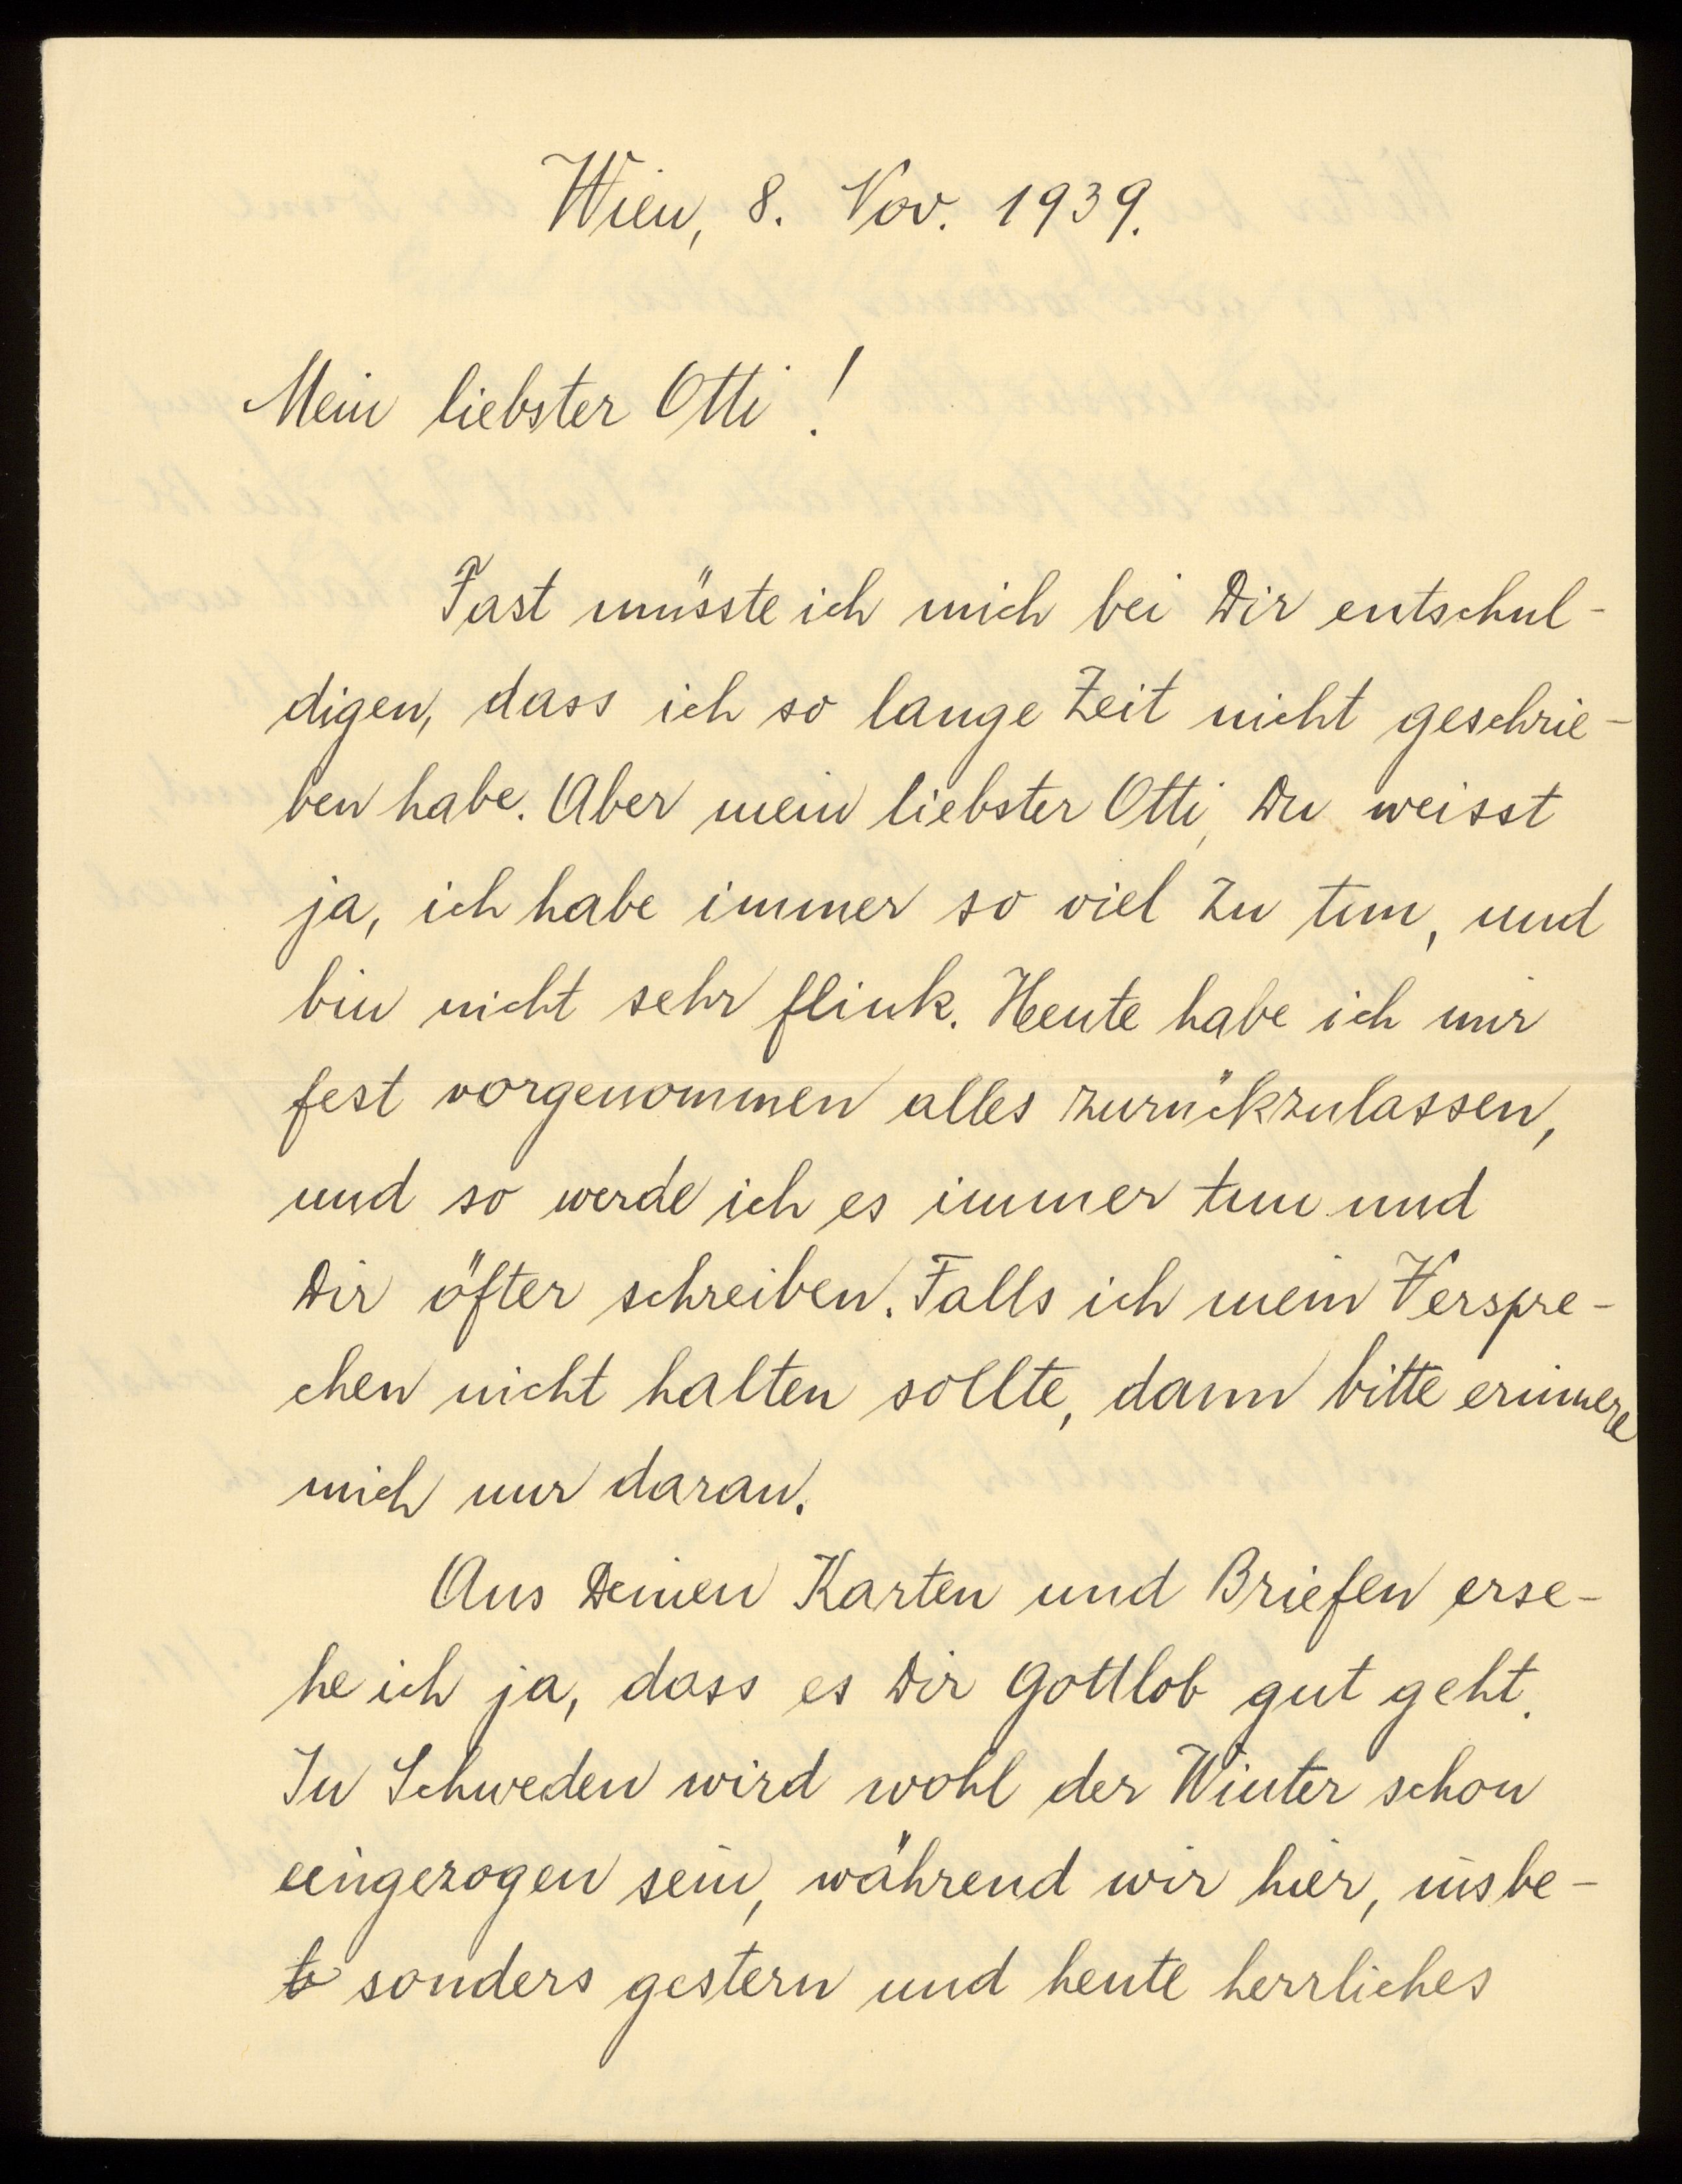 Wien, 8. Nov. 1939.
Mein liebster Otti!
Fast müsste ich mich bei Dir entschul-
digen, dass ich so lange Zeit nicht geschrie-
ben habe. Aber mein liebster Otti, Du weisst
ja, ich habe immer so viel zu tun, und
bin nicht sehr flink. Heute habe ich mir
fest vorgenommen alles zurückzulassen,
und so werde ich es immer tun und
Dir öfter schreiben. Falls ich mein Verspre-
chen nicht halten sollte, dann bitte erinnere
mich nur daran.
Aus Deinen Karten und Briefen erse-
he ich ja, dass es Dir Gottlob gut geht.
In Schweden wird wohl der Winter schon
eingezogen sein, während wir hier, insbe-
sonders gestern und heute herrliches